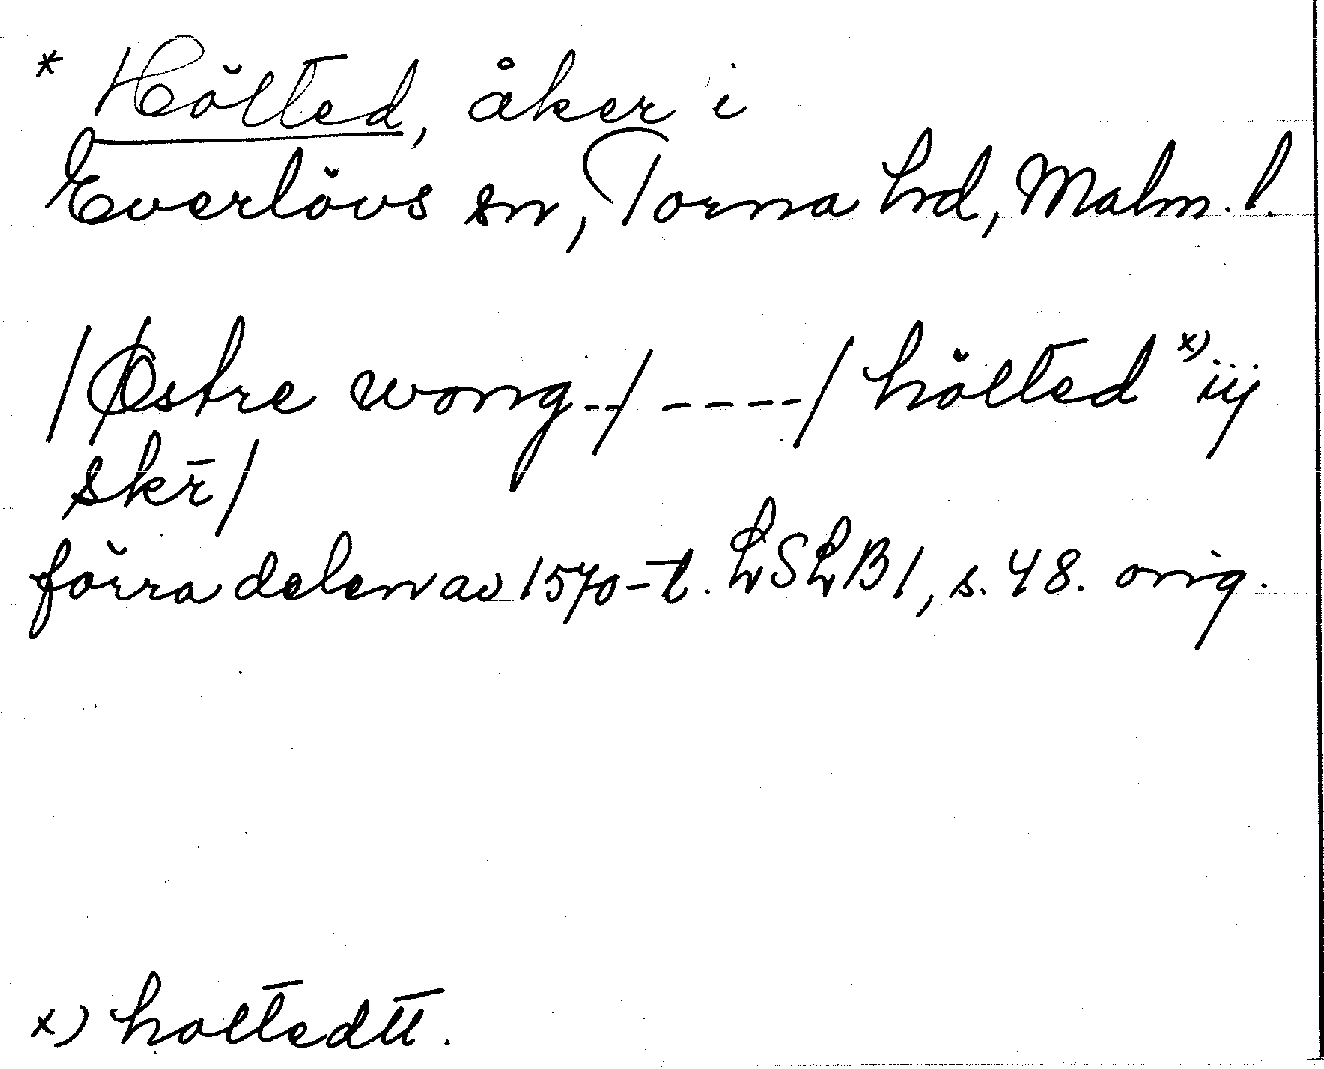 * Hölted, åker i
Everlövs sn, Torna hd, Malm. l.
/Østre wong--/ ----/ hölted x) iij
skr̄/
förra delen av 1570-t. LSLB1, s. 48. orig.
x) holtedtt.